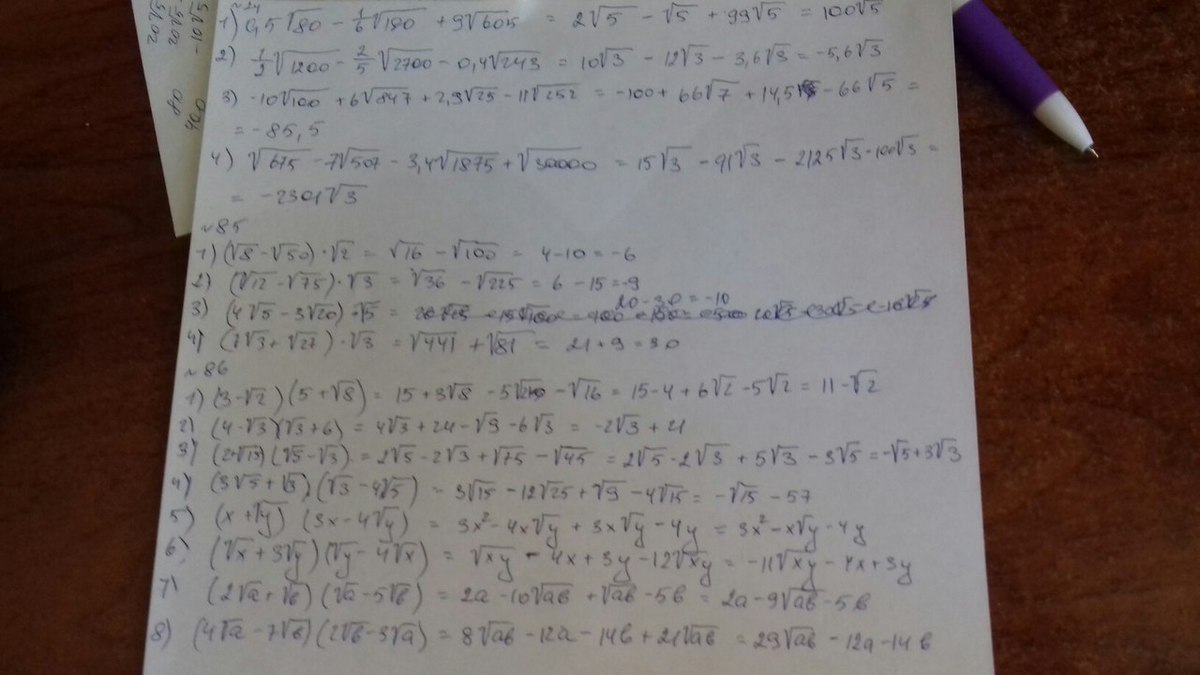 20√5
20√5
-10√5
80
400
№84
1) 0,5√80 - 1/6√180 + 9√605 = 2√5 - √5 + 99√5 = 100√5
2) 1/2√1200 - 2/5√2700 - 0,4√243 = 10√3 - 12√3 - 3,6√3 = -5,6√3
3) -10√100 + 6√847 + 2,9√25 - 11√252 = -100 + 66√7 + 14,5 - 66√5 =
= -85,5
4) √675 - 7√507 - 3,4√1875 + √30000 = 15√3 - 91√3 - 2125√3 - 100√3 =
= -2301√3
№85
1) (√8 - √50) · √2 = √16 - √100 = 4 - 10 = -6
2) (√12 - √75) · √3 = √36 - √225 = 6 - 15 = -9
20 - 30 = -10
3) (4√5 - 3√20) · √5 =
4) (7√3 + √27) · √3 = √441 + √81 = 21 + 9 = 30
№86
1) (3 - √2)(5 + √8) = 15 + 3√8 - 5√2 - √16 = 15 - 4 + 6√2 - 5√2 = 11 - √2
2) (4 - √3)(√3 + 6) = 4√3 + 24 - √9 - 6√3 = -2√3 + 21
3) (2+√15)(√5 - √3) = 2√5 - 2√3 + √75 - √45 = 2√5 - 2√3 + 5√3 - 3√5 = -√5 + 3√3
4) (3√5 + √3)(√3 - 4√5) = 3√15 - 12√25 + √9 - 4√15 = -√15 - 57
5) (x + √y)(3x - 4√y) = 3x² - 4x√y + 3x√y - 4y = 3x² - x√y - 4y
6) (√x + 3√y)(√y - 4√x) = √xy - 4x + 3y - 12√xy = -11√xy - 4x + 3y
7) (2√a + √b)(√a - 5√b) = 2a - 10√ab + √ab - 5b = 2a - 9√ab - 5b
8) (4√a - 7√b)(2√b - 3√a) = 8√ab - 12a - 14b + 21√ab = 29√ab - 12a - 14b